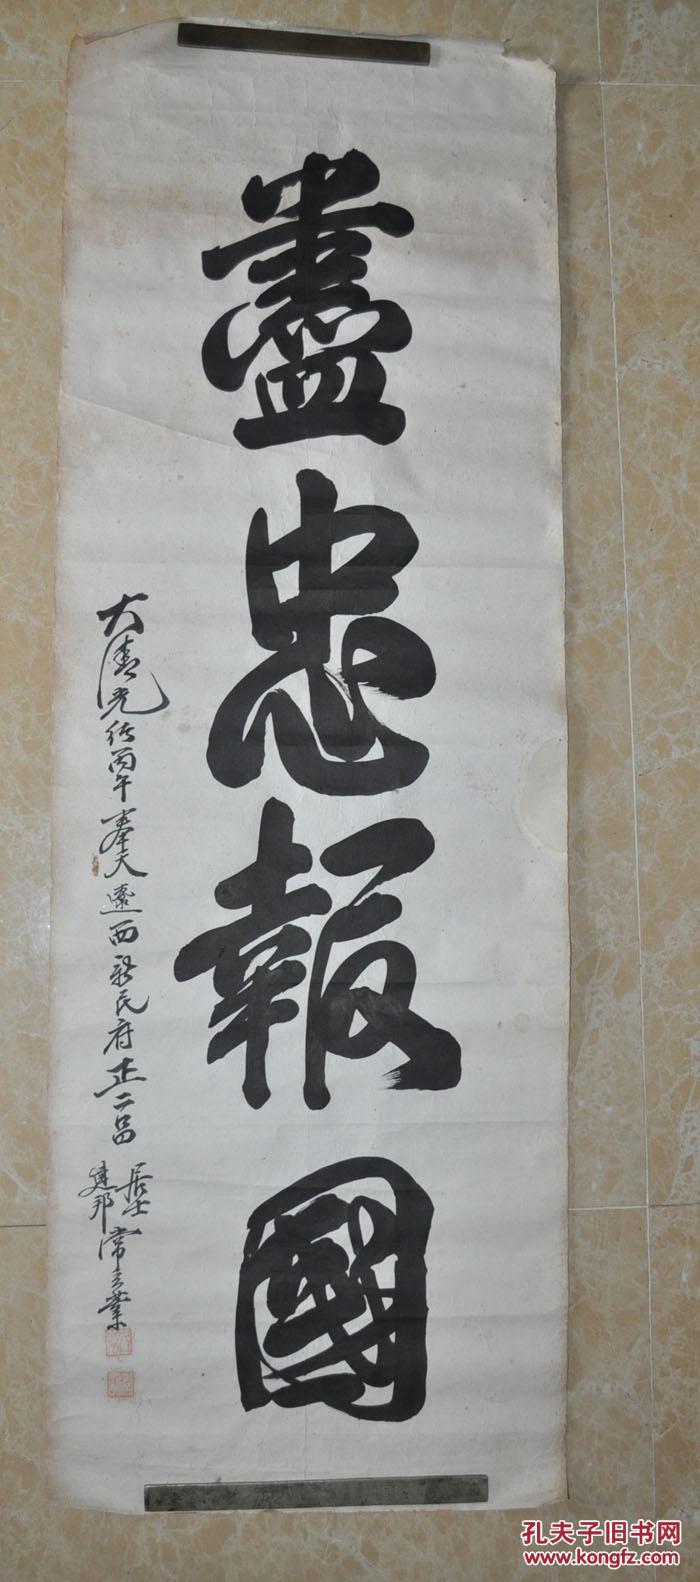 盡忠報國
大清光緒丙午奉天遼西新民府正二品
居士
建邦
常立業
孔夫子旧书网
www.kongfz.com